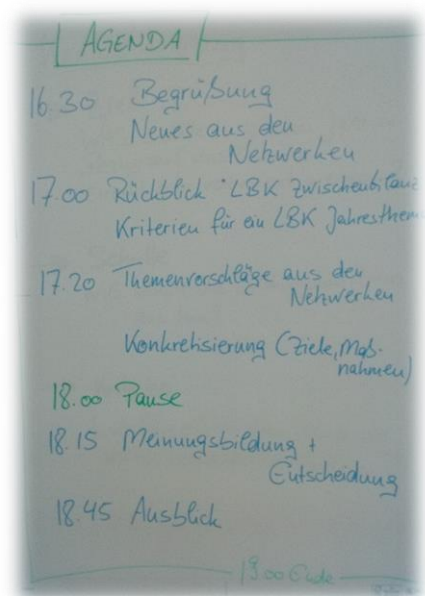 AGENDA
16.30 Begrüßung
Neues aus den
Netzwerken
17.00 Rückblick LBK Zwischenbilanz
Kriterien für ein LBK Jahresthem
17.20 Themenvorschläge aus den
Netzwerken
Konkretisierung (Ziele, Maß-
nahmen)
18.00 Pause
18.15 Meinungsbildung +
Entscheidung
18.45 Ausblick
19.00 Ende